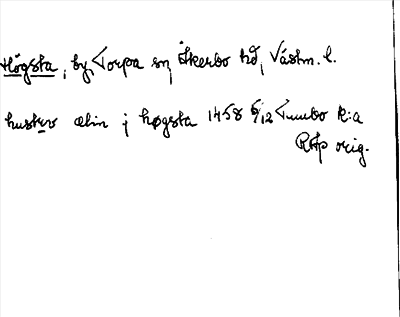 Högsta, by, Torpa sn, Åkerbo hd, Västm. l.
hustrv elin j høgsta 1458 6/12 Tumbo k:a
RAp orig.